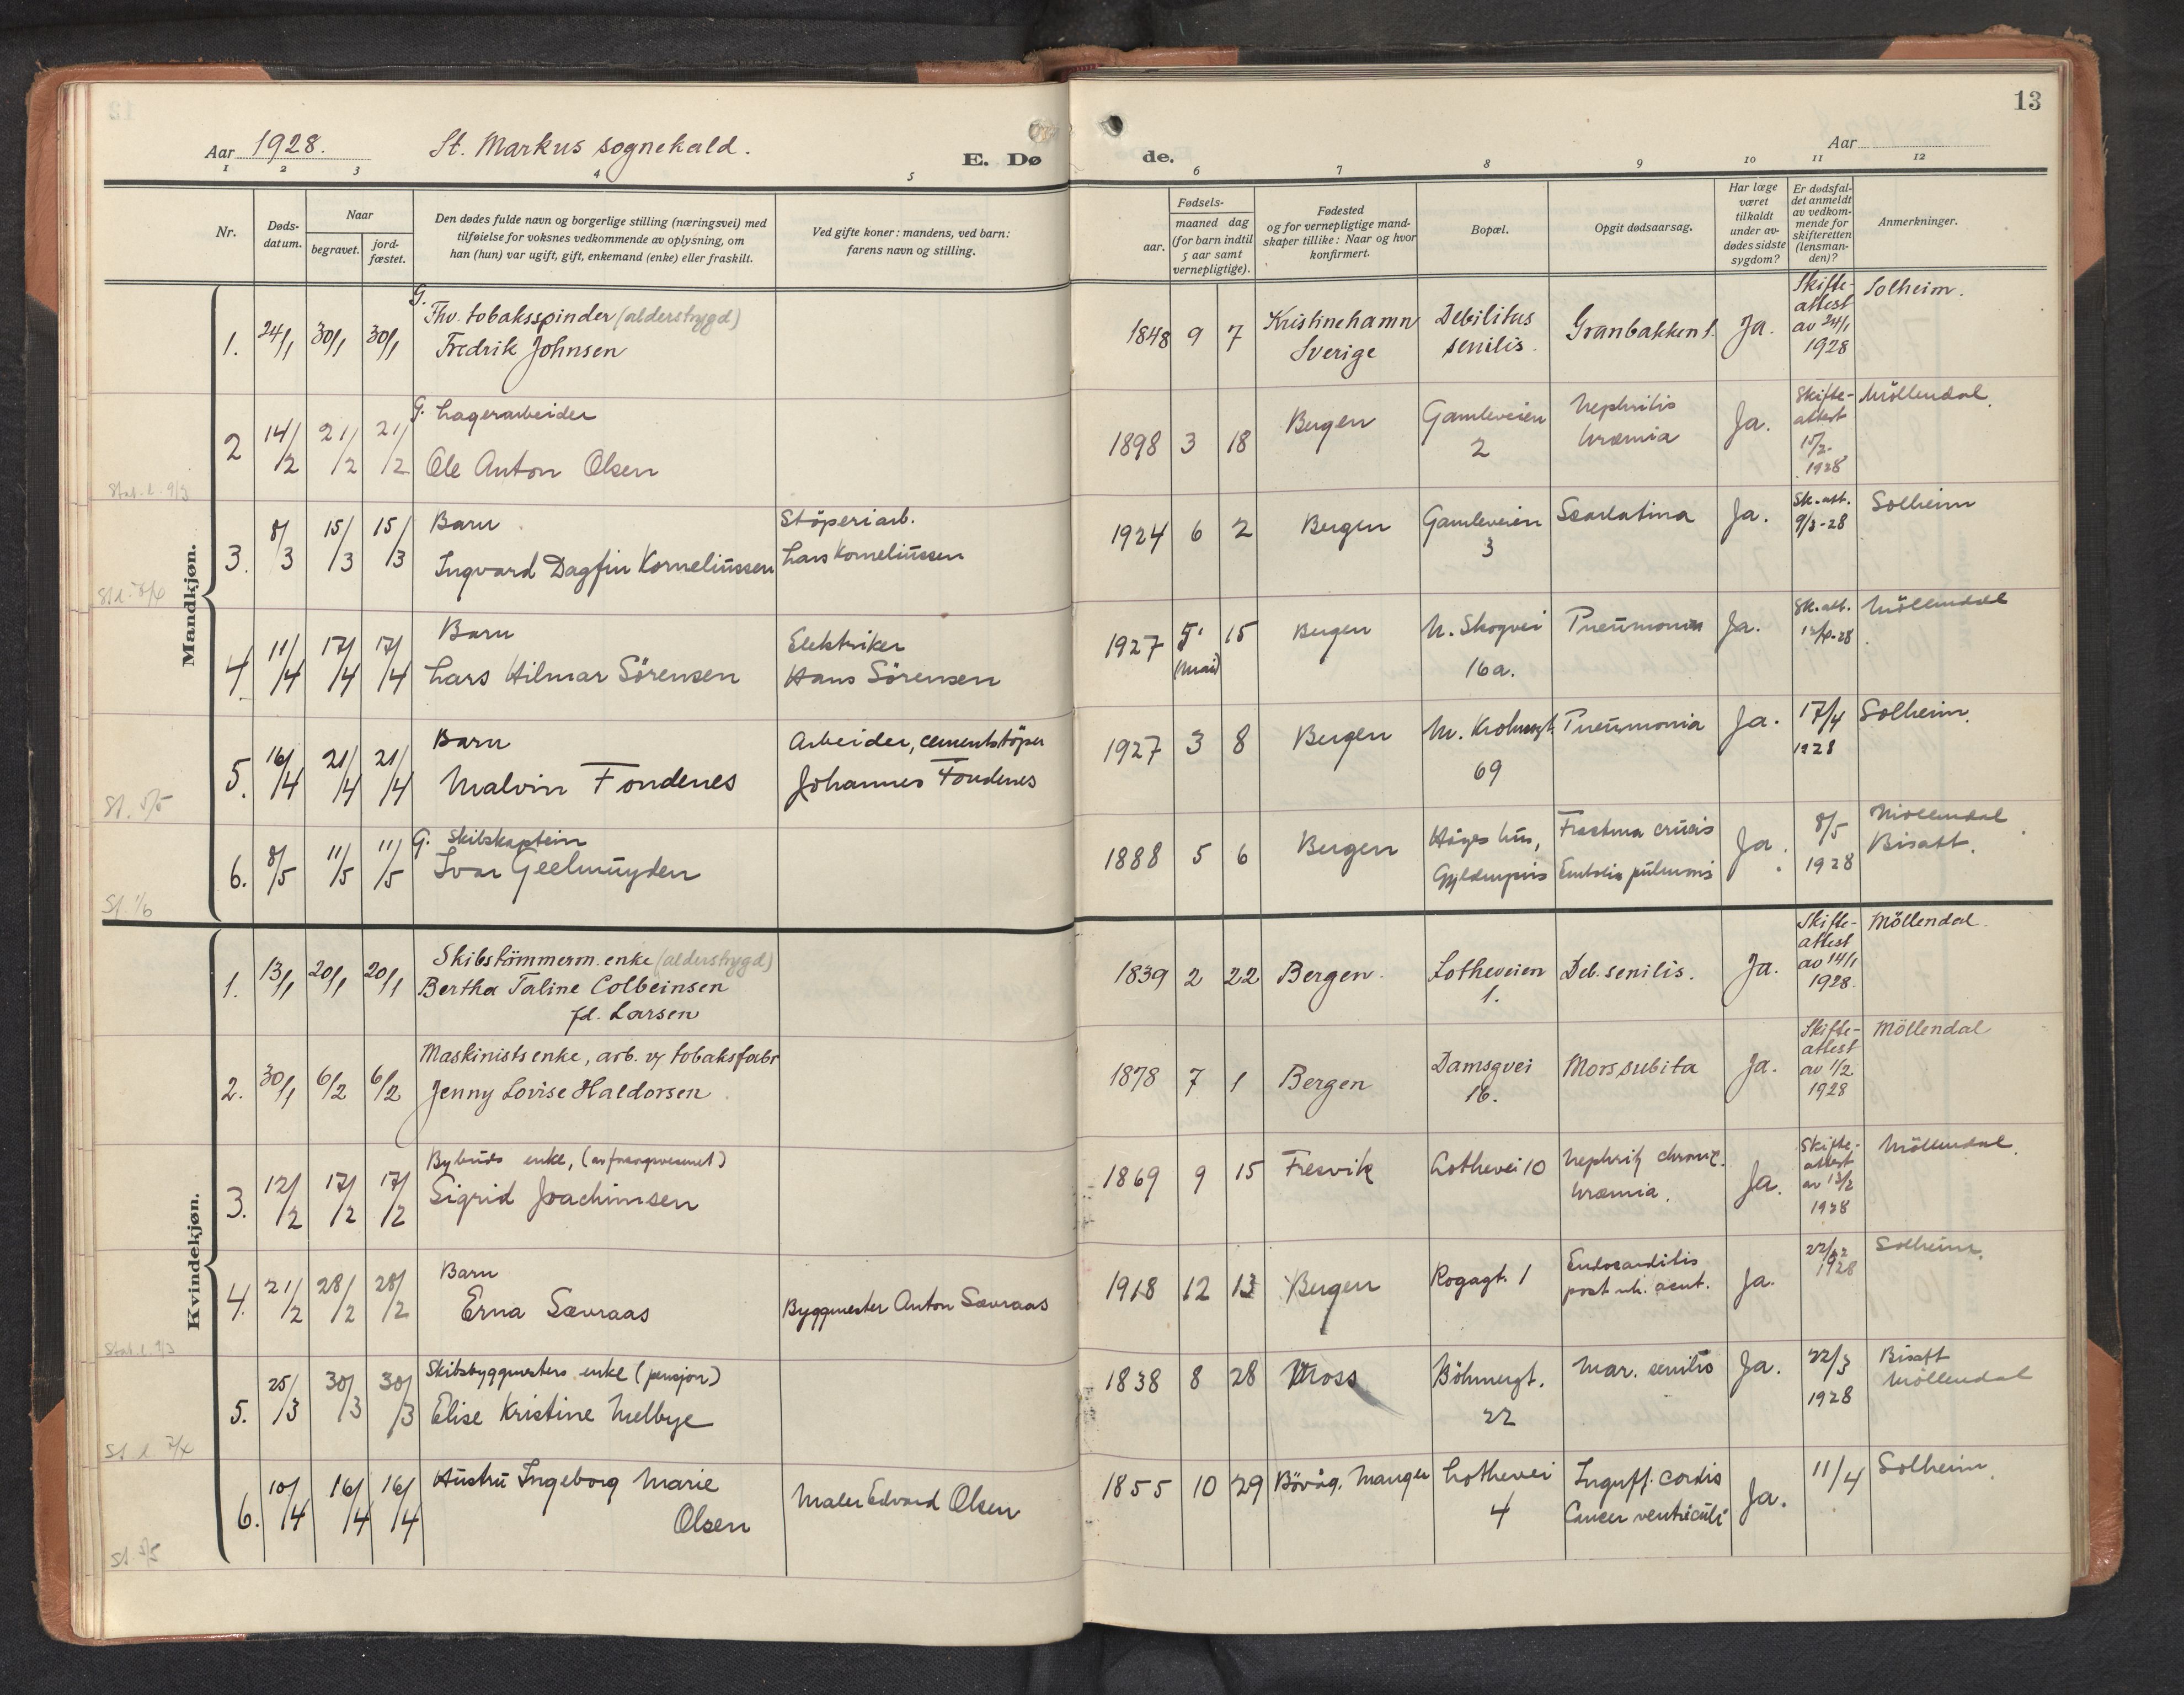 13
Aar 1928.
St. Markus sognekald.
E. Dø
de.
Aar
1 2 3 4 5 6 7 8 9 10 11 12
Nr.
Døds-
datum.
Naar
begravet.
jord-
fæstet.
Den dødes fulde navn og borgerlige stilling (næringsvei) med
tilføielse for voksnes vedkommende av oplysning, om
han (hun) var ugift, gift, enkemand (enke) eller fraskilt.
Ved gifte koner: mandens, ved barn:
farens navn og stilling.
Fødsels-
aar.
maaned dag
(for barn indtil
5 aar samt
vernepligtige).
Fødested
og for vernepligtige mand-
skaper tillike: Naar og hvor
konfirmert.
Bopæl.
Opgit dødsaarsag.
Har læge
været
tilkaldt
under av-
dødes sidste
sygdom?
Er dødsfal-
det anmeldt
av vedkom-
mende for
skifteretten
(lensman-
den)?
Anmerkninger.
Mandkjøn.
1. 24/1 30/1 30/1
G.
Fhv. tobaksspinder (alderstrygd)
Fredrik Johnsen
1848 9 7
Kristinehamn
Sverige
Debilitas
senilis.
Granbakken 1.
Ja.
Skifte-
attest
av 24/1
1928
Solheim.
2 14/2 21/2 21/2
G. Lagerarbeider
Ole Anton Olsen
1898 3 18
Bergen
Gamleveien
2
Nephritis
Uræmia
Ja.
Skifte-
attest
15/2-
1928
Möllendal.
Stat. l. 9/3
3. 8/3 15/3 15/3
Barn
Ingvard Dagfin Korneliussen
Støperiarb.
Lars Korneliussen
1924 6 2
Bergen
Gamleveien
3
Scarlatina
Ja.
Sk. att.
9/3-28
Solheim
4. 11/4 17/4 17/4
Barn
Lars Hilmar Sörensen
Elektriker
Hans Sörensen
1927 5. 15
(mai)
Bergen
N. Skogvei
16a.
Pneumonia
Ja.
Sk. att.
12/4-28
Möllendal
5. 16/4 21/4 21/4
Barn
Malvin Fondenes
Arbeider, cementstöper
Johannes Fondenes
1927 3 8
Bergen
M. Krohnsgt.
69
Pneumonia
Ja.
17/4
1928
Solheim.
St. 5/5
6. 8/5 11/5 11/5
G. Skibskaptein
Ivar Geelmuyden
1888 5 6
Bergen
Höges hus,
Gyldenpris
Fractura cruris
Embolia pulmonis
Ja.
8/5
1928
Möllendal
Bisatt.
St. 1/6
Kvindekjøn.
1. 13/1 20/1 20/1
Skibstömmerm. enke (alderstrygd)
Bertha Taline Colbeinsen
fd. Larsen
1839 2 22
Bergen.
Lotheveien
1.
Deb. senilis.
Ja.
Skifte-
attest
av 14/1
1928.
Möllendal.
2. 30/1 6/2 6/2
Maskinists enke, arb. v/ tobaksfabr
Jenny Lovise Haldorsen
1878 7 1
Bergen
Damsgvei
16.
Mors subita
Ja.
Skifte-
attest
av 1/2
1928
Möllendal
3. 12/2 17/2 17/2
Bybuds enke, (av forsorgsvesenet)
Sigrid Joachimsen
1869 9 15
Fresvik
Lothevei 10
Nephrit. chronic.
Uræmia.
Ja.
Skifte-
attest
av 13/2
1928
Möllendal.
4. 21/2 28/2 28/2
Barn
Erna Sævraas
Byggmester Anton Sævraas
1918 12 13
Bergen
Rogagt. 1
Endocarditis
post rh. acut.
Ja.
22/2
1928
Solheim.
Stat. l. 9/3
5. 25/3 30/3 30/3
Skibsbyggmesters enke (pensjon)
Elise Kristine Melbye
1838 8 28
Moss
Böhmergt.
22
Mar. senilis
Ja.
22/3
1928
Bisatt
Möllendal
6. 10/4 16/4 16/4
Hustru Ingeborg Marie
Olsen
Maler Edvard Olsen
1855 10 29
Bövåg, Manger
Lothevei
4
Insuff. cordis
Cancer ventriculi
Ja.
11/4
Solheim.
St. 5/5